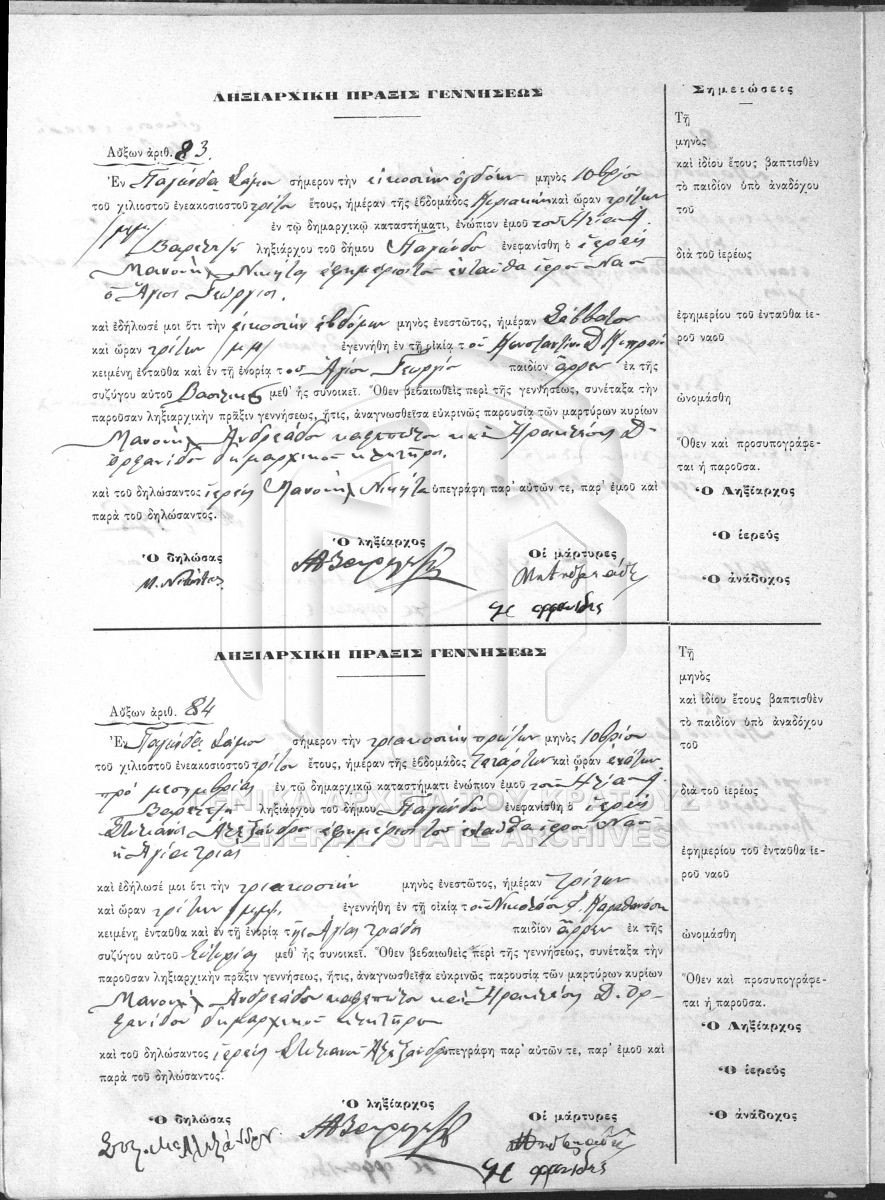 ΛΗΞΙΑΡΧΙΚΗ ΠΡΑΞΙΣ ΓΕΝΝΗΣΕΩΣ
Αὔξων ἀριθ. 83.
Ἐν Παγώνδα Σάμου σήμερον τὴν εἰκοστὴν ὀγδόην μηνὸς 10βρίου
τοῦ χιλιοστοῦ ἐνεακοσιοστοῦ τρίτου ἔτους, ἡμέραν τῆς ἑβδομάδος Κυριακὴν καὶ ὥραν τρίτην
/μμμ/ ἐν τῷ δημαρχικῷ καταστήματι, ἐνώπιον ἐμοῦ τοῦ
ληξιάρχου τοῦ δήμου Παγώνδα ἐνεφανίσθη ὁ ἱερεὺς
Μανουὴλ Νικήτα ἐφημέριος τοῦ ἐνταῦθα ἱεροῦ Ναοῦ
ὁ Ἅγιος Γεώργιος.
καὶ ἐδήλωσέ μοι ὅτι τὴν εἰκοστὴν ἑβδόμην μηνὸς ἐνεστῶτος, ἡμέραν Σάββατον
καὶ ὥραν τρίτην /μμ/ ἐγεννήθη ἐν τῇ οἰκίᾳ τοῦ Κωνσταντίνου Δ.
κειμένῃ ἐνταῦθα καὶ ἐν τῇ ἐνορίᾳ τοῦ Ἁγίου Γεωργίου παιδίον ἄρρεν ἐκ τῆς
συζύγου αὐτοῦ μεθ' ἧς συνοικεῖ. Ὅθεν βεβαιωθεὶς περὶ τῆς γεννήσεως, συνέταξα τὴν
παροῦσαν ληξιαρχικὴν πρᾶξιν γεννήσεως, ἥτις, ἀναγνωσθεῖσα εὐκρινῶς παρουσίᾳ τῶν μαρτύρων κυρίων
Μανουὴλ Ἀνδρεάδου καφεπώλου καὶ Ἡρακλέους Δ.
Ὀρφανίδου δημαρχικοῦ κλητῆρος.
καὶ τοῦ δηλώσαντος ἱερέως Μανουὴλ Νικήτα ὑπεγράφη παρ' αὐτῶν τε, παρ' ἐμοῦ καὶ
παρὰ τοῦ δηλώσαντος.
Ὁ δηλώσας
Ὁ ληξίαρχος
Οἱ μάρτυρες
Μ. Νικήτας
Σημειώσεις
Τῇ
μηνὸς
καὶ ἰδίου ἔτους βαπτισθὲν
τὸ παιδίον ὑπὸ ἀναδόχου
τοῦ
διὰ τοῦ ἱερέως
ἐφημερίου τοῦ ἐνταῦθα ἱε-
ροῦ ναοῦ
ὠνομάσθη
Ὅθεν καὶ προσυπογράφε-
ται ἡ παροῦσα.
Ὁ Ληξίαρχος
Ὁ ἱερεὺς
Ὁ ἀνάδοχος
ΛΗΞΙΑΡΧΙΚΗ ΠΡΑΞΙΣ ΓΕΝΝΗΣΕΩΣ
Αὔξων ἀριθ. 84
Ἐν Παγώνδα Σάμου σήμερον τὴν τριακοστὴν πρώτην μηνὸς 10βρίου
τοῦ χιλιοστοῦ ἐνεακοσιοστοῦ τρίτου ἔτους, ἡμέραν τῆς ἑβδομάδος τετάρτην καὶ ὥραν ἐνάτην
πρὸ μεσημβρίας ἐν τῷ δημαρχικῷ καταστήματι ἐνώπιον ἐμοῦ τοῦ
ληξιάρχου τοῦ δήμου Παγώνδα ἐνεφανίσθη ὁ ἱερεὺς
Στυλιανὸς Ἀλεξάνδρου ἐφημέριος τοῦ ἐνταῦθα ἱεροῦ Ναοῦ
ἡ Ἁγία Τριὰς
καὶ ἐδήλωσέ μοι ὅτι τὴν τριακοστὴν μηνὸς ἐνεστῶτος, ἡμέραν τρίτην
καὶ ὥραν τρίτην /μμμ/ ἐγεννήθη ἐν τῇ οἰκίᾳ τοῦ Νικολάου
κειμένῃ ἐνταῦθα καὶ ἐν τῇ ἐνορίᾳ τῆς Ἁγίας Τριάδος παιδίον ἄρρεν ἐκ τῆς
συζύγου αὐτοῦ μεθ' ἧς συνοικεῖ. Ὅθεν βεβαιωθεὶς περὶ τῆς γεννήσεως, συνέταξα τὴν
παροῦσαν ληξιαρχικὴν πρᾶξιν γεννήσεως, ἥτις, ἀναγνωσθεῖσα εὐκρινῶς παρουσίᾳ τῶν μαρτύρων κυρίων
Μανουὴλ Ἀνδρεάδου καφεπώλου καὶ Ἡρακλέους Δ. Ὀρ-
φανίδου δημαρχικοῦ κλητῆρος
καὶ τοῦ δηλώσαντος ἱερέως Στυλιανοῦ Ἀλεξάνδρου ὑπεγράφη παρ' αὐτῶν τε, παρ' ἐμοῦ καὶ
παρὰ τοῦ δηλώσαντος.
Ὁ δηλώσας
Ὁ ληξίαρχος
Οἱ μάρτυρες
Τῇ
μηνὸς
καὶ ἰδίου ἔτους βαπτισθὲν
τὸ παιδίον ὑπὸ ἀναδόχου
τοῦ
διὰ τοῦ ἱερέως
ἐφημερίου τοῦ ἐνταῦθα ἱε-
ροῦ ναοῦ
ὠνομάσθη
Ὅθεν καὶ προσυπογράφε-
ται ἡ παροῦσα.
Ὁ Ληξίαρχος
Ὁ ἱερεὺς
Ὁ ἀνάδοχος
ΓΕΝΙΚΑ ΑΡΧΕΙΑ ΤΟΥ ΚΡΑΤΟΥΣ
GENERAL STATE ARCHIVES